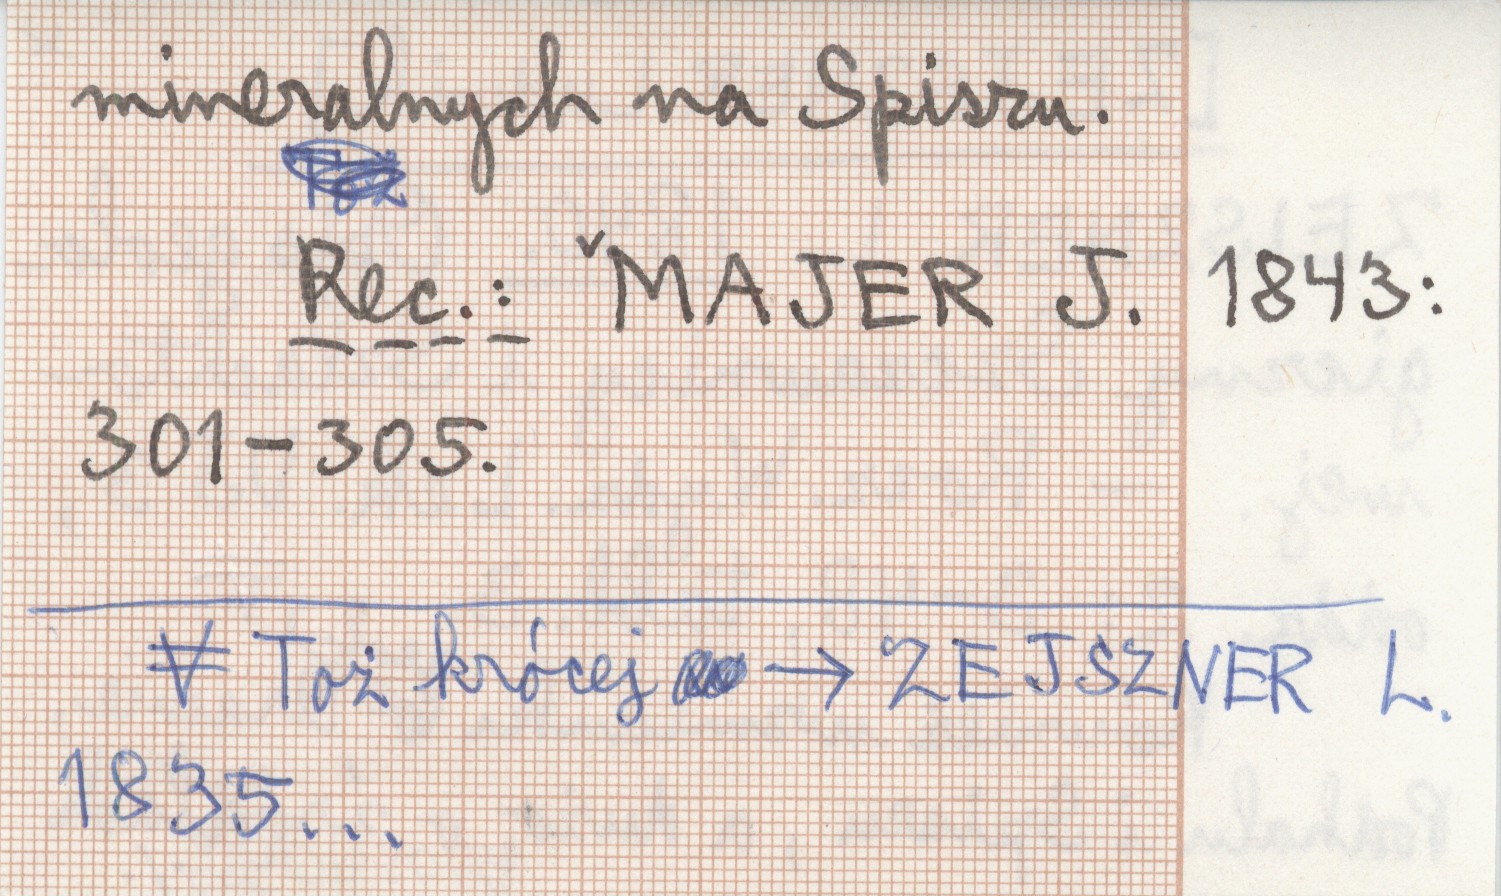 mineralnych na Spiszu.
Rec.: ˇMAJER J. 1843:
301-305.
Toż krócej → ZEJSZNER L.
1835...